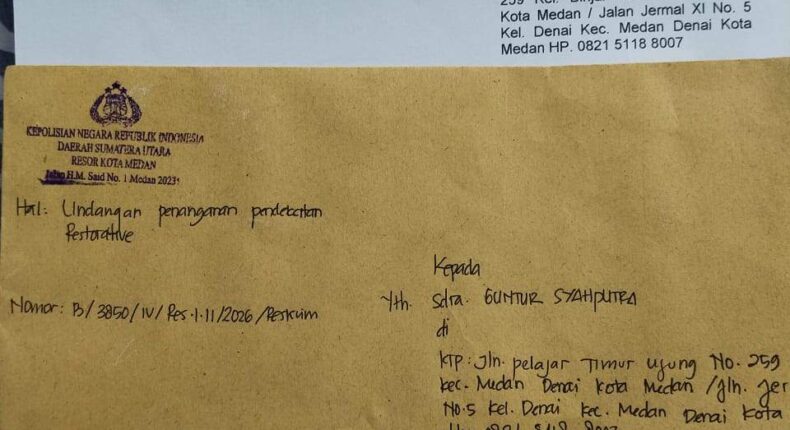 Kota Medan / Jalan Jermal XI No. 5
Kel. Denai Kec. Medan Denai Kota
Medan HP. 0821 5118 8007
KEPOLISIAN NEGARA REPUBLIK INDONESIA
DAERAH SUMATERA UTARA
RESOR KOTA MEDAN
Jalan H.M. Said No. 1 Medan 2023
Hal: Undangan penanganan pendekatan
Restorative
Nomor: B/3850/IV/Res.1.11/2026/Reskrim
Kepada
Yth. Sdra. GUNTUR SYAHPUTRA
di
KTP: Jln. pelajar Timur ujung No. 259
kec. Medan Denai Kota Medan /Jln. Jer
No.5 Kel. Denai kec. Medan Denai Kota